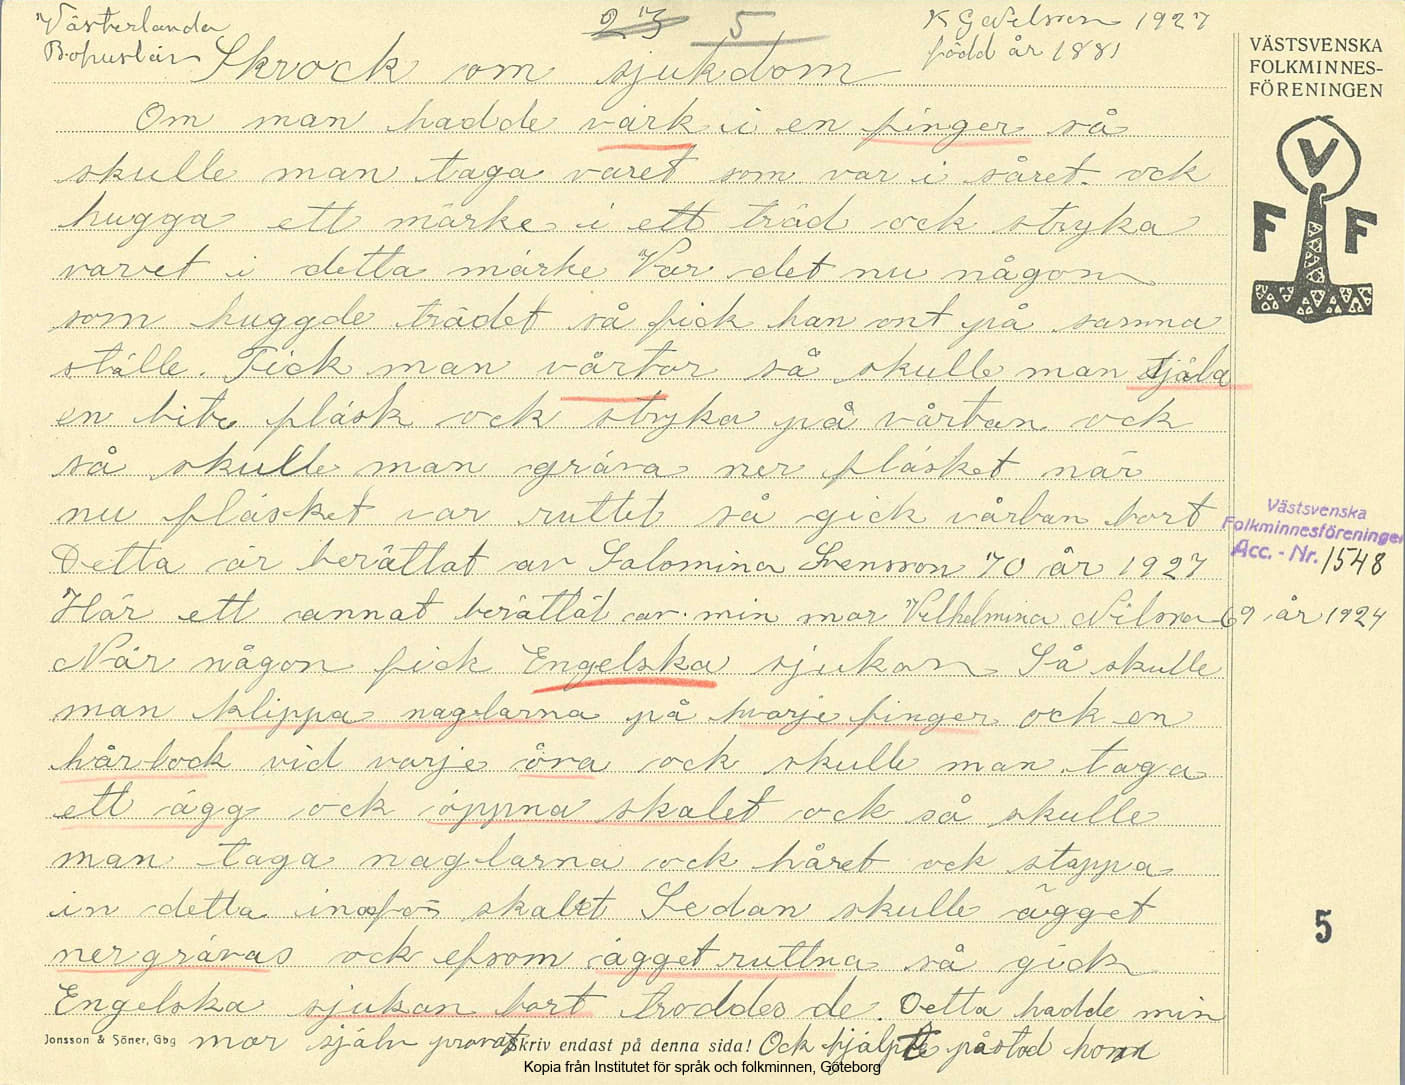 Västerlanda
Bohuslän
23 5
K G Nilsson 1927
född år 1881
VÄSTSVENSKA
FOLKMINNES-
FÖRENINGEN
V
F F
Skrock om sjukdom
Om man hadde värk i en finger så
skulle man taga varet som var i såret ock
hugga ett märke i ett träd ock stryka
varet i detta märke Var det nu någon
som huggde trädet så fick han ont på samma
ställe. Fick man vårtor så skulle man stjäla
en bite fläsk ock stryka på vårtan ock
så skulle man gräva ner fläsket när
nu fläsket var ruttet så gick vårtan bort
Detta är berättat av Salomina Svensson 70 år 1927
Här ett annat berättat av min mor Vilhelmina Nilsson 69 år 1924
När någon fick Engelska sjukan Så skulle
man klippa naglarna på hvarje finger ock en
hårlock vid varje öra ock skulle man taga
ett ägg ock öppna skalet ock så skulle
man taga naglarna ock håret ock stoppa
in detta inoför skalet Sedan skulle ägget
nergrävas ock efsom ägget ruttna så gick
Engelska sjukan bort troddes de. Detta hadde min
mor själv provat Ock hjälpte påstod honn
Västsvenska
Folkminnesföreningen
Acc. - Nr. 1548
5
Jonsson & Söner, Gbg
Skriv endast på denna sida!
Kopia från Institutet för språk och folkminnen, Göteborg